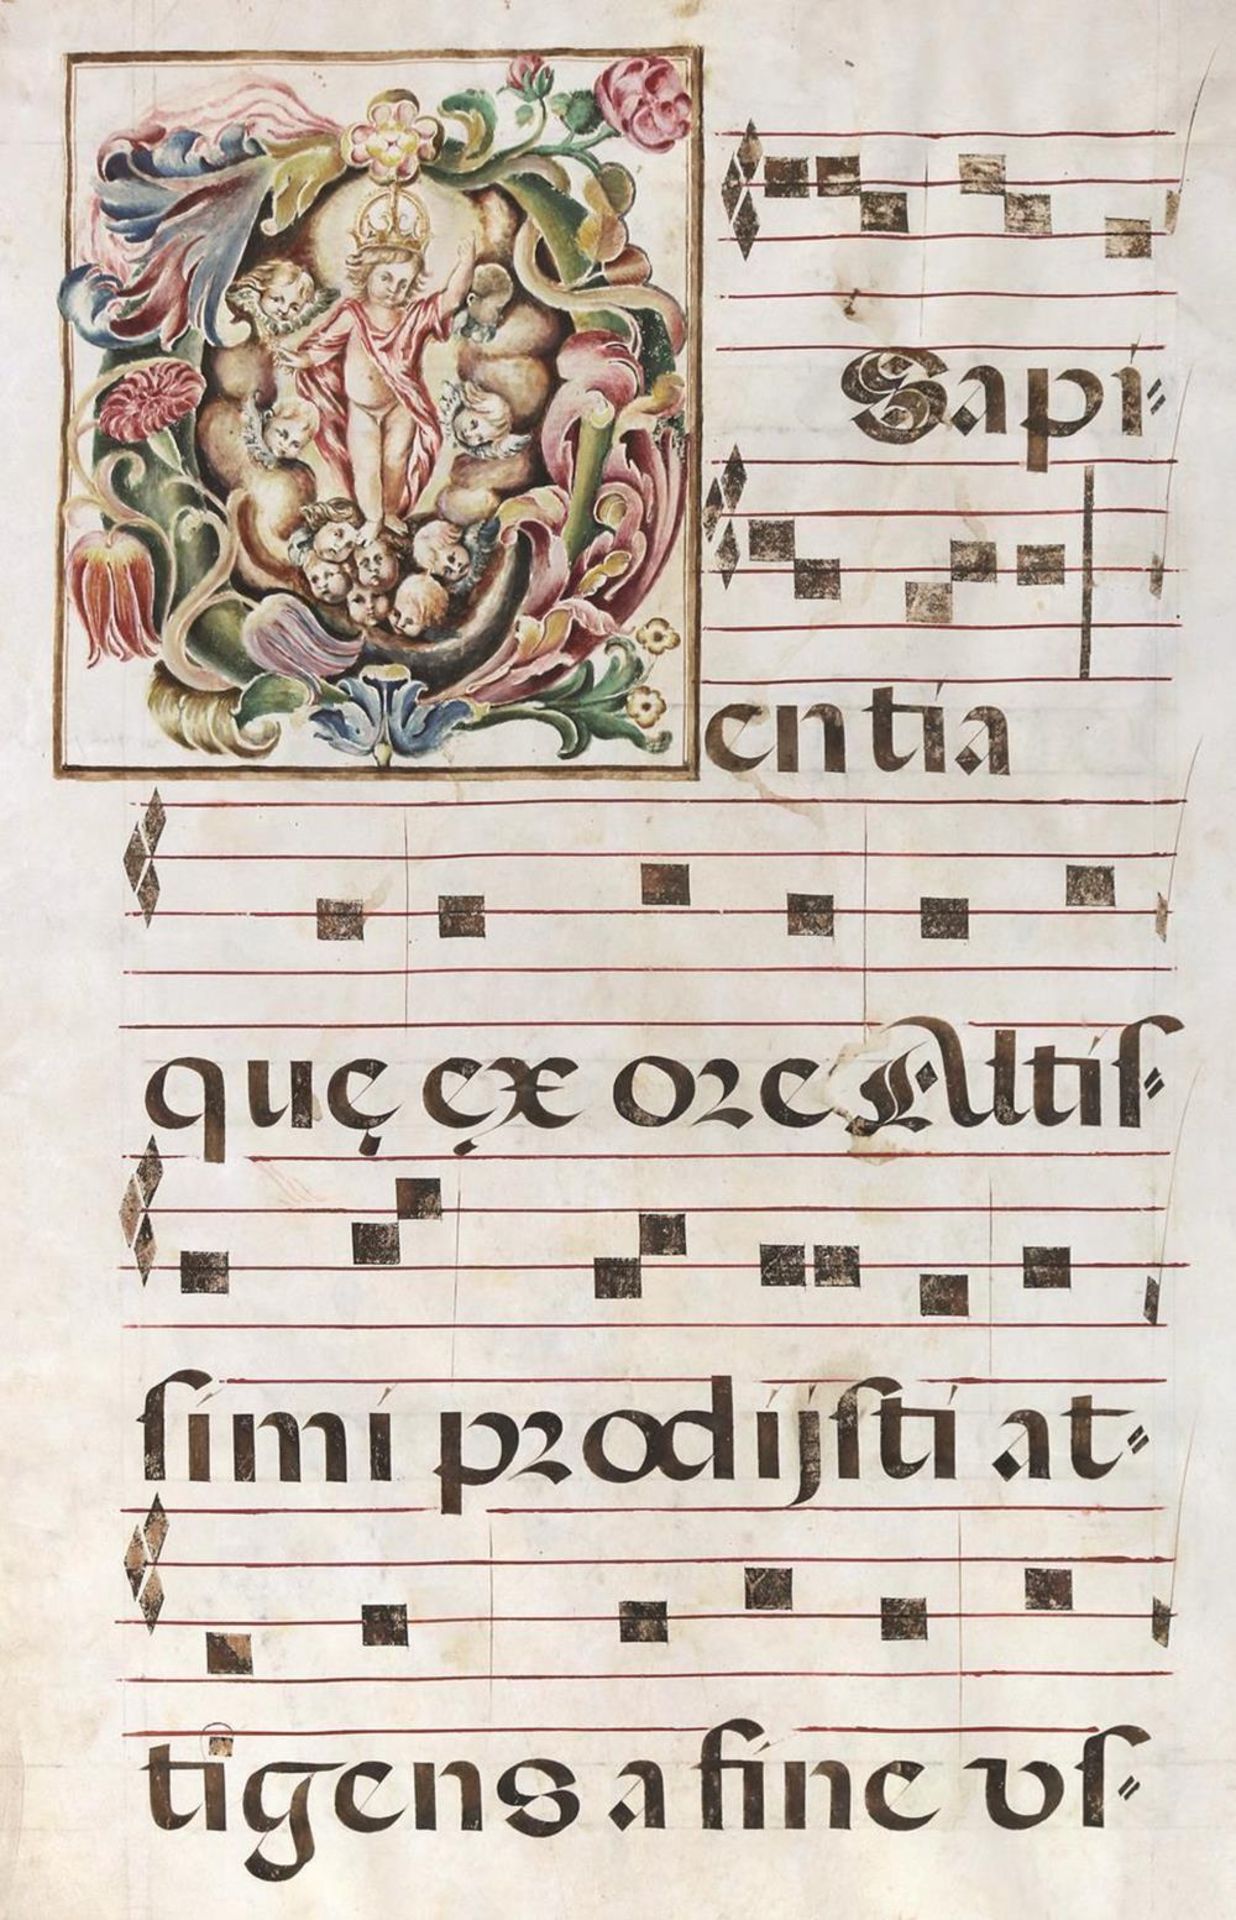 O Sapi=
entia
quę ęx ore Altis=
simi prodijsti at=
tigens a fine vs=